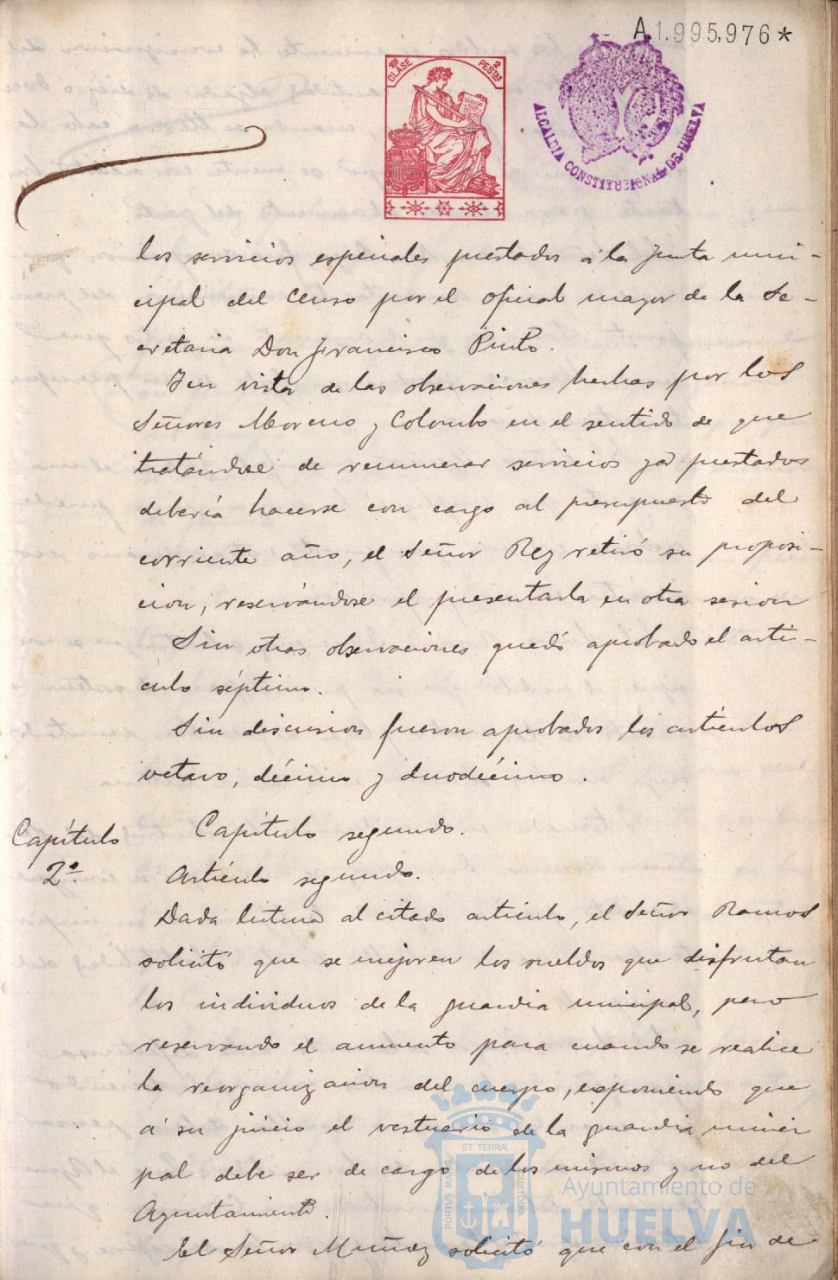 A1.995,976*
10ª CLASE 2 PESTAS
ALCALDIA CONSTITUCIONAL DE HUELVA
los servicios especiales prestados á la Junta muni-
cipal del Censo por el oficial mayor de la Se-
cretaria Don Francisco Pinto.
En vista de las observaciones hechas por los
Señores Moreno y Colombo en el sentido de que
tratándose de remunerar servicios ya prestados
debería hacerse con cargo al presupuesto del
corriente año, el Señor Rey retiró su proposi-
cion, reservándose el presentarla en otra sesion
Sin otras observaciones quedó aprobado el artí-
culo séptimo.
Sin discusion fueron aprobados los artículos
octavo, décimo y duodécimo.
Capítulo
2º
Capítulo segundo.
Artículo segundo.
Dada lectura al citado artículo, el Señor Ramos
solicitó que se mejoren los sueldos que disfrutan
los individuos de la guardia municipal, pero
reservando el aumento para cuando se realice
la reorganizacion del cuerpo, exponiendo que
á su juicio el vestuario de la guardia munici
pal debe ser de cargo de los mismos y no del
Ayuntamiento.
El Señor Muñoz solicitó que con el fin de
PORTUS MARIS ET TERRÆ CUSTODIA
Ayuntamiento de
HUELVA